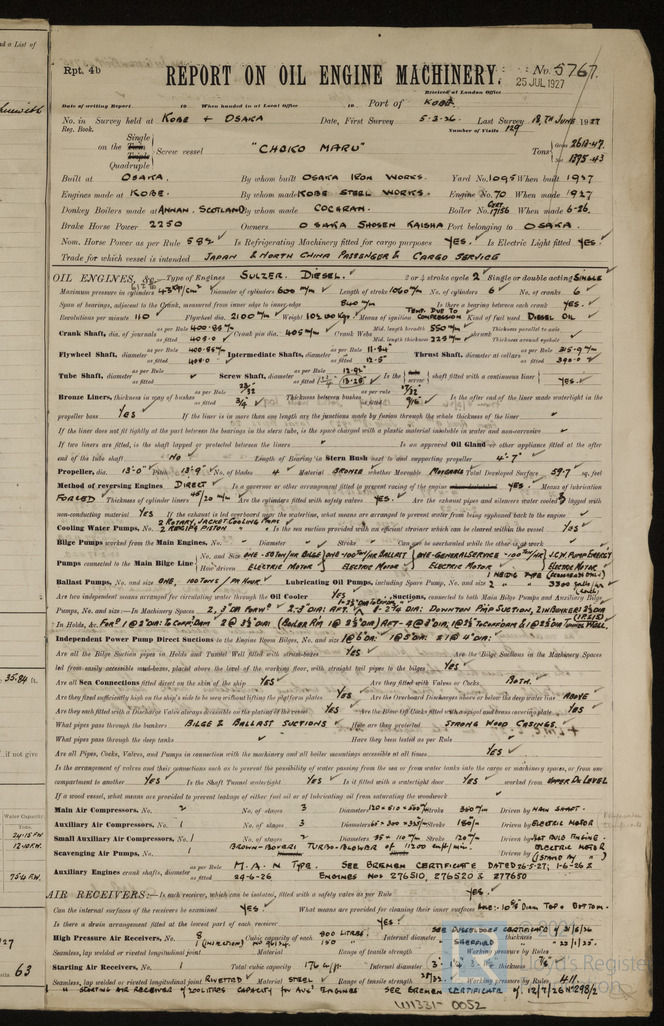 Rpt. 4b
REPORT ON OIL ENGINE MACHINERY.
No. 5767.
25 JUL 1927
Received at London Office
Date of writing Report 19 When handed in at Local Office 19 Port of KOBE
No. in Survey held at KOBE + OSAKA Date, First Survey 5-3-26. Last Survey 18TH JUNE 1927
Reg. Book. Number of Visits 129
Single
on the Twin Triple Screw vessel "CHOKO MARU" Tons Gross 2613.47. Net 1395.43
Quadruple
Built at OSAKA. By whom built OSAKA IRON WORKS. Yard No. 1095 When built 1927
Engines made at KOBE. By whom made KOBE STEEL WORKS. Engine No. 70 When made 1927
Donkey Boilers made at ANNAN. SCOTLAND By whom made COCHRAN. Boiler No. 17156 When made 6-26.
Brake Horse Power 2250 Owners OSAKA SHOSEN KAISHA Port belonging to OSAKA.
Nom. Horse Power as per Rule 582 Is Refrigerating Machinery fitted for cargo purposes YES. Is Electric Light fitted YES.
Trade for which vessel is intended JAPAN & NORTH CHINA PASSENGER & CARGO SERVICE
OIL ENGINES, &c. Type of Engines SULZER. DIESEL. 2 or 4 stroke cycle 2 Single or double acting SINGLE
Maximum pressure in cylinders 43 Kg/cm² Diameter of cylinders 600 m/m Length of stroke 1060 m/m No. of cylinders 6 No. of cranks 6
Span of bearings, adjacent to the Crank, measured from inner edge to inner edge 840 m/m Is there a bearing between each crank YES.
Revolutions per minute 110 Flywheel dia. 2100 m/m Weight Means of ignition TEMP. DUE TO COMPRESSION Kind of fuel used DIESEL OIL
Crank Shaft, dia. of journals as per Rule as fitted 405.0 Crank pin dia. 405 m/m Crank Webs Mid. length breadth 550 m/m Mid. length thickness 225 m/m shrunk Thickness parallel to axis Thickness around eyehole
Flywheel Shaft, diameter as per Rule as fitted 405.0 Intermediate Shafts, diameter as per Rule 11.84" as fitted 12.5" Thrust Shaft, diameter at collars as per Rule as fitted 390.0
Tube Shaft, diameter as per Rule as fitted Screw Shaft, diameter as per Rule as fitted 13.25" Is the tube screw shaft fitted with a continuous liner YES.
Bronze Liners, thickness in way of bushes as per Rule 23/32 as fitted 3/4" Thickness between bushes as per Rule 17/32 as fitted 9/16" Is the after end of the liner made watertight in the
propeller boss YES If the liner is in more than one length are the junctions made by fusion through the whole thickness of the liner
If the liner does not fit tightly at the part between the bearings in the stern tube, is the space charged with a plastic material insoluble in water and non-corrosive
If two liners are fitted, is the shaft lapped or protected between the liners Is an approved Oil Gland or other appliance fitted at the after
end of the tube shaft NO Length of Bearing in Stern Bush next to and supporting propeller 4'-7"
Propeller, dia. 13'-0" Pitch 13'-9" No. of blades 4 Material BRONZE whether Moveable MOVEABLE Total Developed Surface 59.7 sq. feet
Method of reversing Engines DIRECT Is a governor or other arrangement fitted to prevent racing of the engine YES. Means of lubrication
FORCED Thickness of cylinder liners 45/20 m/m Are the cylinders fitted with safety valves YES. Are the exhaust pipes and silencers water cooled & lagged with
non-conducting material YES If the exhaust is led overboard near the waterline, what means are arranged to prevent water from being syphoned back to the engine
Cooling Water Pumps, No. 2 ROTARY, JACKET COOLING PUMPS 2 RECIP'G PISTON " " Is the sea suction provided with an efficient strainer which can be cleared within the vessel YES
Bilge Pumps worked from the Main Engines, No. Diameter Stroke Can one be overhauled while the other is at work
Pumps connected to the Main Bilge Line No. and Size ONE-50 TON/HR BILGE ONE-100 TON/HR BALLAST ONE-GENERAL SERVICE-100 TON/HR
How driven ELECTRIC MOTOR ELECTRIC MOTOR ELECTRIC MOTOR ELECTRIC MOTOR
Ballast Pumps, No. and size ONE, 100 TONS/PR HOUR. Lubricating Oil Pumps, including Spare Pump, No. and size 2
Are two independent means arranged for circulating water through the Oil Cooler YES Suctions, connected to both Main Bilge Pumps and Auxiliary Bilge
Pumps, No. and size:—In Machinery Spaces
In Holds, &c.
Independent Power Pump Direct Suctions to the Engine Room Bilges, No. and size 1 @ 6" DIA. 1 @ 5" DIA: 2 @ 4" DIA:
Are all the Bilge Suction pipes in Holds and Tunnel Well fitted with strum-boxes YES Are the Bilge Suctions in the Machinery Spaces
led from easily accessible mud-boxes, placed above the level of the working floor, with straight tail pipes to the bilges YES
Are all Sea Connections fitted direct on the skin of the ship YES Are they fitted with Valves or Cocks BOTH.
Are they fixed sufficiently high on the ship's side to be seen without lifting the platform plates YES Are the Overboard Discharges above or below the deep water line ABOVE
Are they each fitted with a Discharge Valve always accessible on the plating of the vessel YES Are the Blow Off Cocks fitted with a spigot and brass covering plate YES
What pipes pass through the bunkers BILGE & BALLAST SUCTIONS How are they protected STRONG WOOD CASINGS.
What pipes pass through the deep tanks Have they been tested as per Rule
Are all Pipes, Cocks, Valves, and Pumps in connection with the machinery and all boiler mountings accessible at all times YES
Is the arrangement of valves and their connections such as to prevent the possibility of water passing from the sea or from water tanks into the cargo or machinery spaces, or from one
compartment to another YES Is the Shaft Tunnel watertight YES Is it fitted with a watertight door YES worked from UPPER DK LEVEL
If a wood vessel, what means are provided to prevent leakage of either fuel oil or of lubricating oil from saturating the woodwork
Main Air Compressors, No. 2 No. of stages 3 Diameters Stroke 360 m/m Driven by MAIN SHAFT.
Auxiliary Air Compressors, No. 1 No. of stages 3 Diameters Stroke Driven by ELECTRIC MOTOR
Small Auxiliary Air Compressors, No. 1 No. of stages 2 Diameters 35 + 110 m/m Stroke 120 m/m Driven by HOT BULB ENGINE.
Scavenging Air Pumps, No. 1 BROWN-BOVERI TURBO-BLOWER OF 11200 cu.ft/min. Driven by ELECTRIC MOTOR
Auxiliary Engines crank shafts, diameter as per Rule M.A.N TYPE. SEE BREMEN CERTIFICATE DATED 26-5-27; 1-6-26 &
as fitted 24-6-26 ENGINES NOS 276510, 276520 & 277650
AIR RECEIVERS:— Is each receiver, which can be isolated, fitted with a safety valve as per Rule YES.
Can the internal surfaces of the receivers be examined YES. What means are provided for cleaning their inner surfaces
Is there a drain arrangement fitted at the lowest part of each receiver YES.
High Pressure Air Receivers, No. 8 Cubic capacity of each 300 LITRES Internal diameter thickness
SEE DUSSELDORF CERTIFICATE of 31/5/26
1 (INJECTION) 150 " " SHEFFIELD " "
Seamless, lap welded or riveted longitudinal joint Material Range of tensile strength Working pressure by Rules
Starting Air Receivers, No. 1 Total cubic capacity 176 cu/ft. Internal diameter thickness
Seamless, lap welded or riveted longitudinal joint RIVETTED Material STEEL Range of tensile strength Working pressure by Rules 411.
" STARTING AIR RECEIVER of 200 LITRES CAPACITY FOR AUX' ENGINES SEE BREMEN CERTIFICATE of 12/7/26 Nº 298/2
W1331-0052
35.84 ft.
if not give
Water Capacity.
Tons.
24.15 F.W.
75.4 F.W.
63
Lloyd's Register